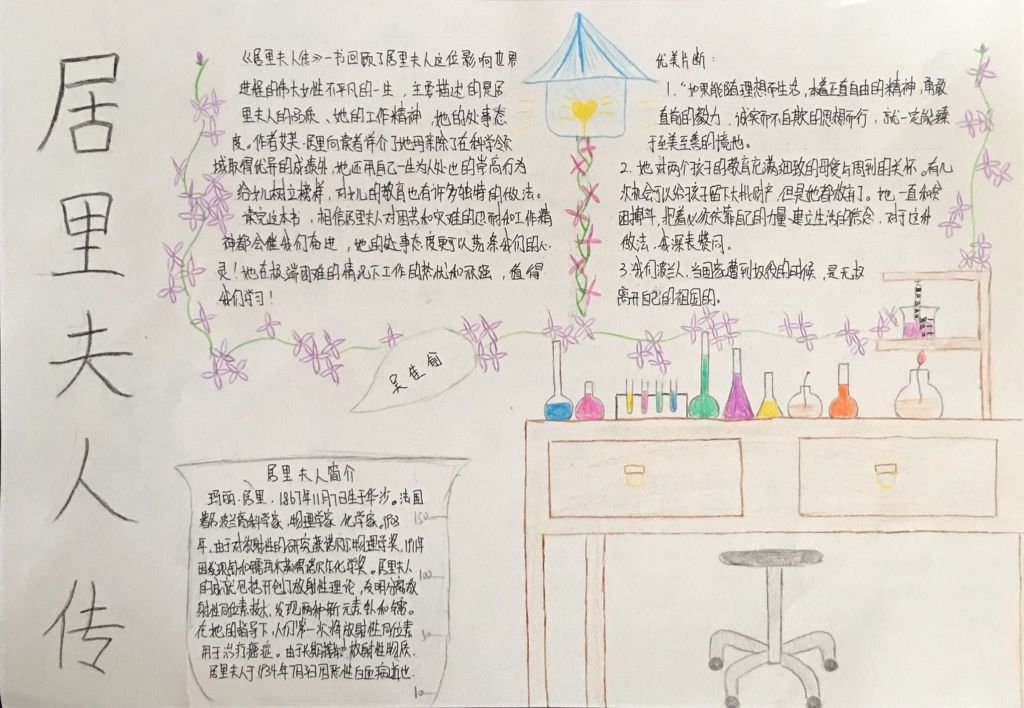 居里夫人传
《居里夫人传》一书回顾了居里夫人这位影响世界
进程的伟大女性不平凡的一生，主要描述的是居
里夫人的品质、她的工作精神，她的处事态
度。作者艾芙·居里向读者介了她母亲除了在科学领
域取得优异的成绩外，她还用自己一生为人处世的崇高行为
给女儿树立榜样，对女儿的教育也有许多独特的做法。
读完这本书，相信居里夫人对困苦和灾难的忍耐和工作精
神都会催我们奋进，她的处事态度更可以荡涤我们的心
灵！她在极端困难的情况下工作的热忱和顽强，值得
我们学习！
优美片断：
1."如果能随理想而生活，本着正直自由的精神，勇敢
直前的毅力，诚实而不自欺的思想而行，就一定能臻
于至美至善的境地。
2.她对两个孩子的教育充满细致的母爱与周到的关怀。有几
次机会可以给孩子留下大批财产，但是她都放弃了。她一直和贫
困搏斗，抱着必须依靠自己的力量建立生活的信念，对于这种
做法，我深表赞同。
3.我们波兰人，当国家遭到奴役的时候，是无权
离开自己的祖国的。
吴佳
居里夫人简介
玛丽·居里，1867年11月7日生于华沙。法国
著名波兰裔科学家、物理学家、化学家。1903
年，由于对放射性的研究获诺贝尔物理学奖，1911年
因发现钋和镭再次获得诺贝尔化学奖。居里夫人
的成就包括开创了放射性理论，发明分离放
射性同位素技术，发现两种新元素钋和镭。
在她的指导下，人们第一次将放射性同位素
用于治疗癌症。由于长期接触放射性物质，
居里夫人于1934年7月 日因恶性白血病逝世
150
100
50
10